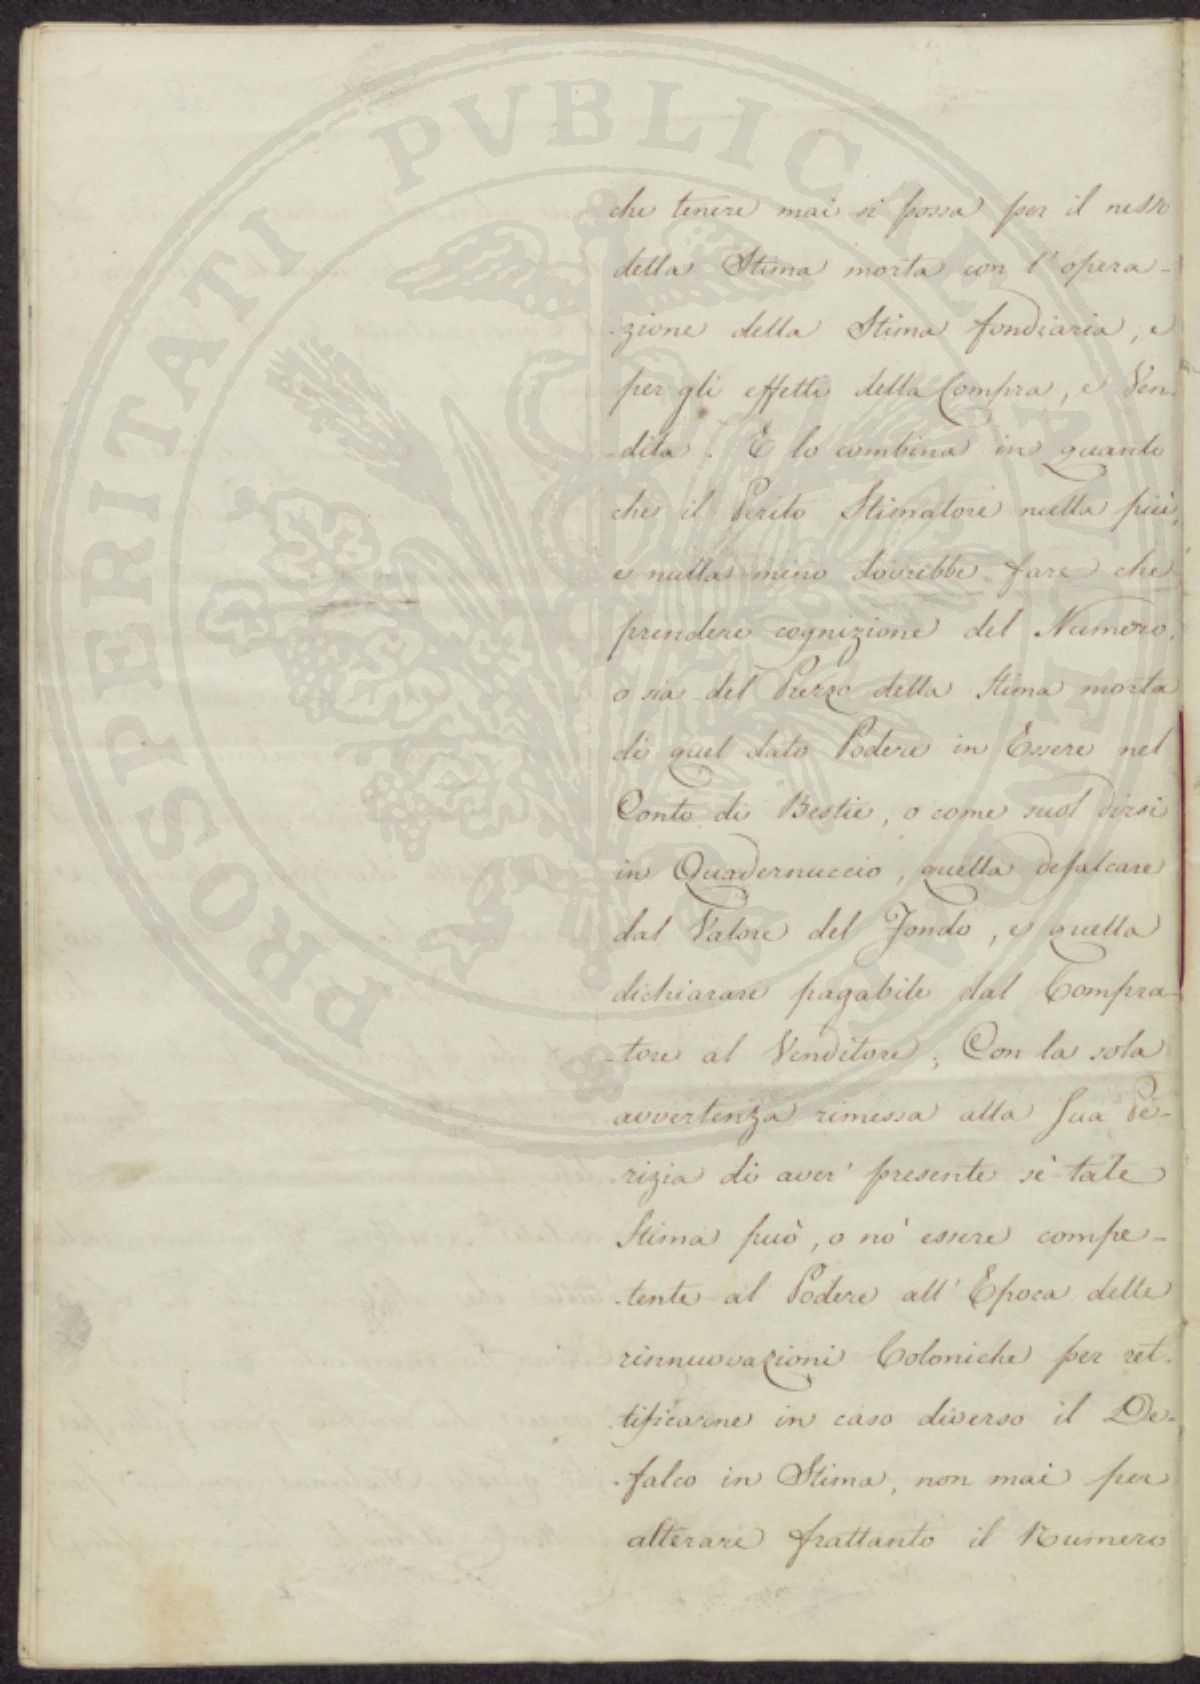 che tenere mai si possa per il nesso
della Stima morta con l'opera-
-zione della Stima fondiaria, e
per gli effetti della Compra, e Ven-
-dita. E lo combina in quanto
che il Perito Stimatore nulla più,
e nulla meno dovrebbe fare che
prendere cognizione del Numero,
o sia del Prezzo della Stima morta
di quel dato Podere in Essere nel
Conto di Bestie, o come suol dirsi
in Quadernuccio, quella defalcare
dal Valore del Fondo, e quella
dichiarare pagabile dal Compra-
-tore al Venditore; Con la sola
avvertenza rimessa alla Sua Pe-
rizia di aver' presente sè tale
Stima può, o nò essere compe-
-tente al Podere all'Epoca delle
rinnuovazioni Coloniche per ret-
-tificarne in caso diverso il De-
-falco in Stima, non mai per
alterare frattanto il Numero
PROSPERITATI PVBLICAE AVGENDAE